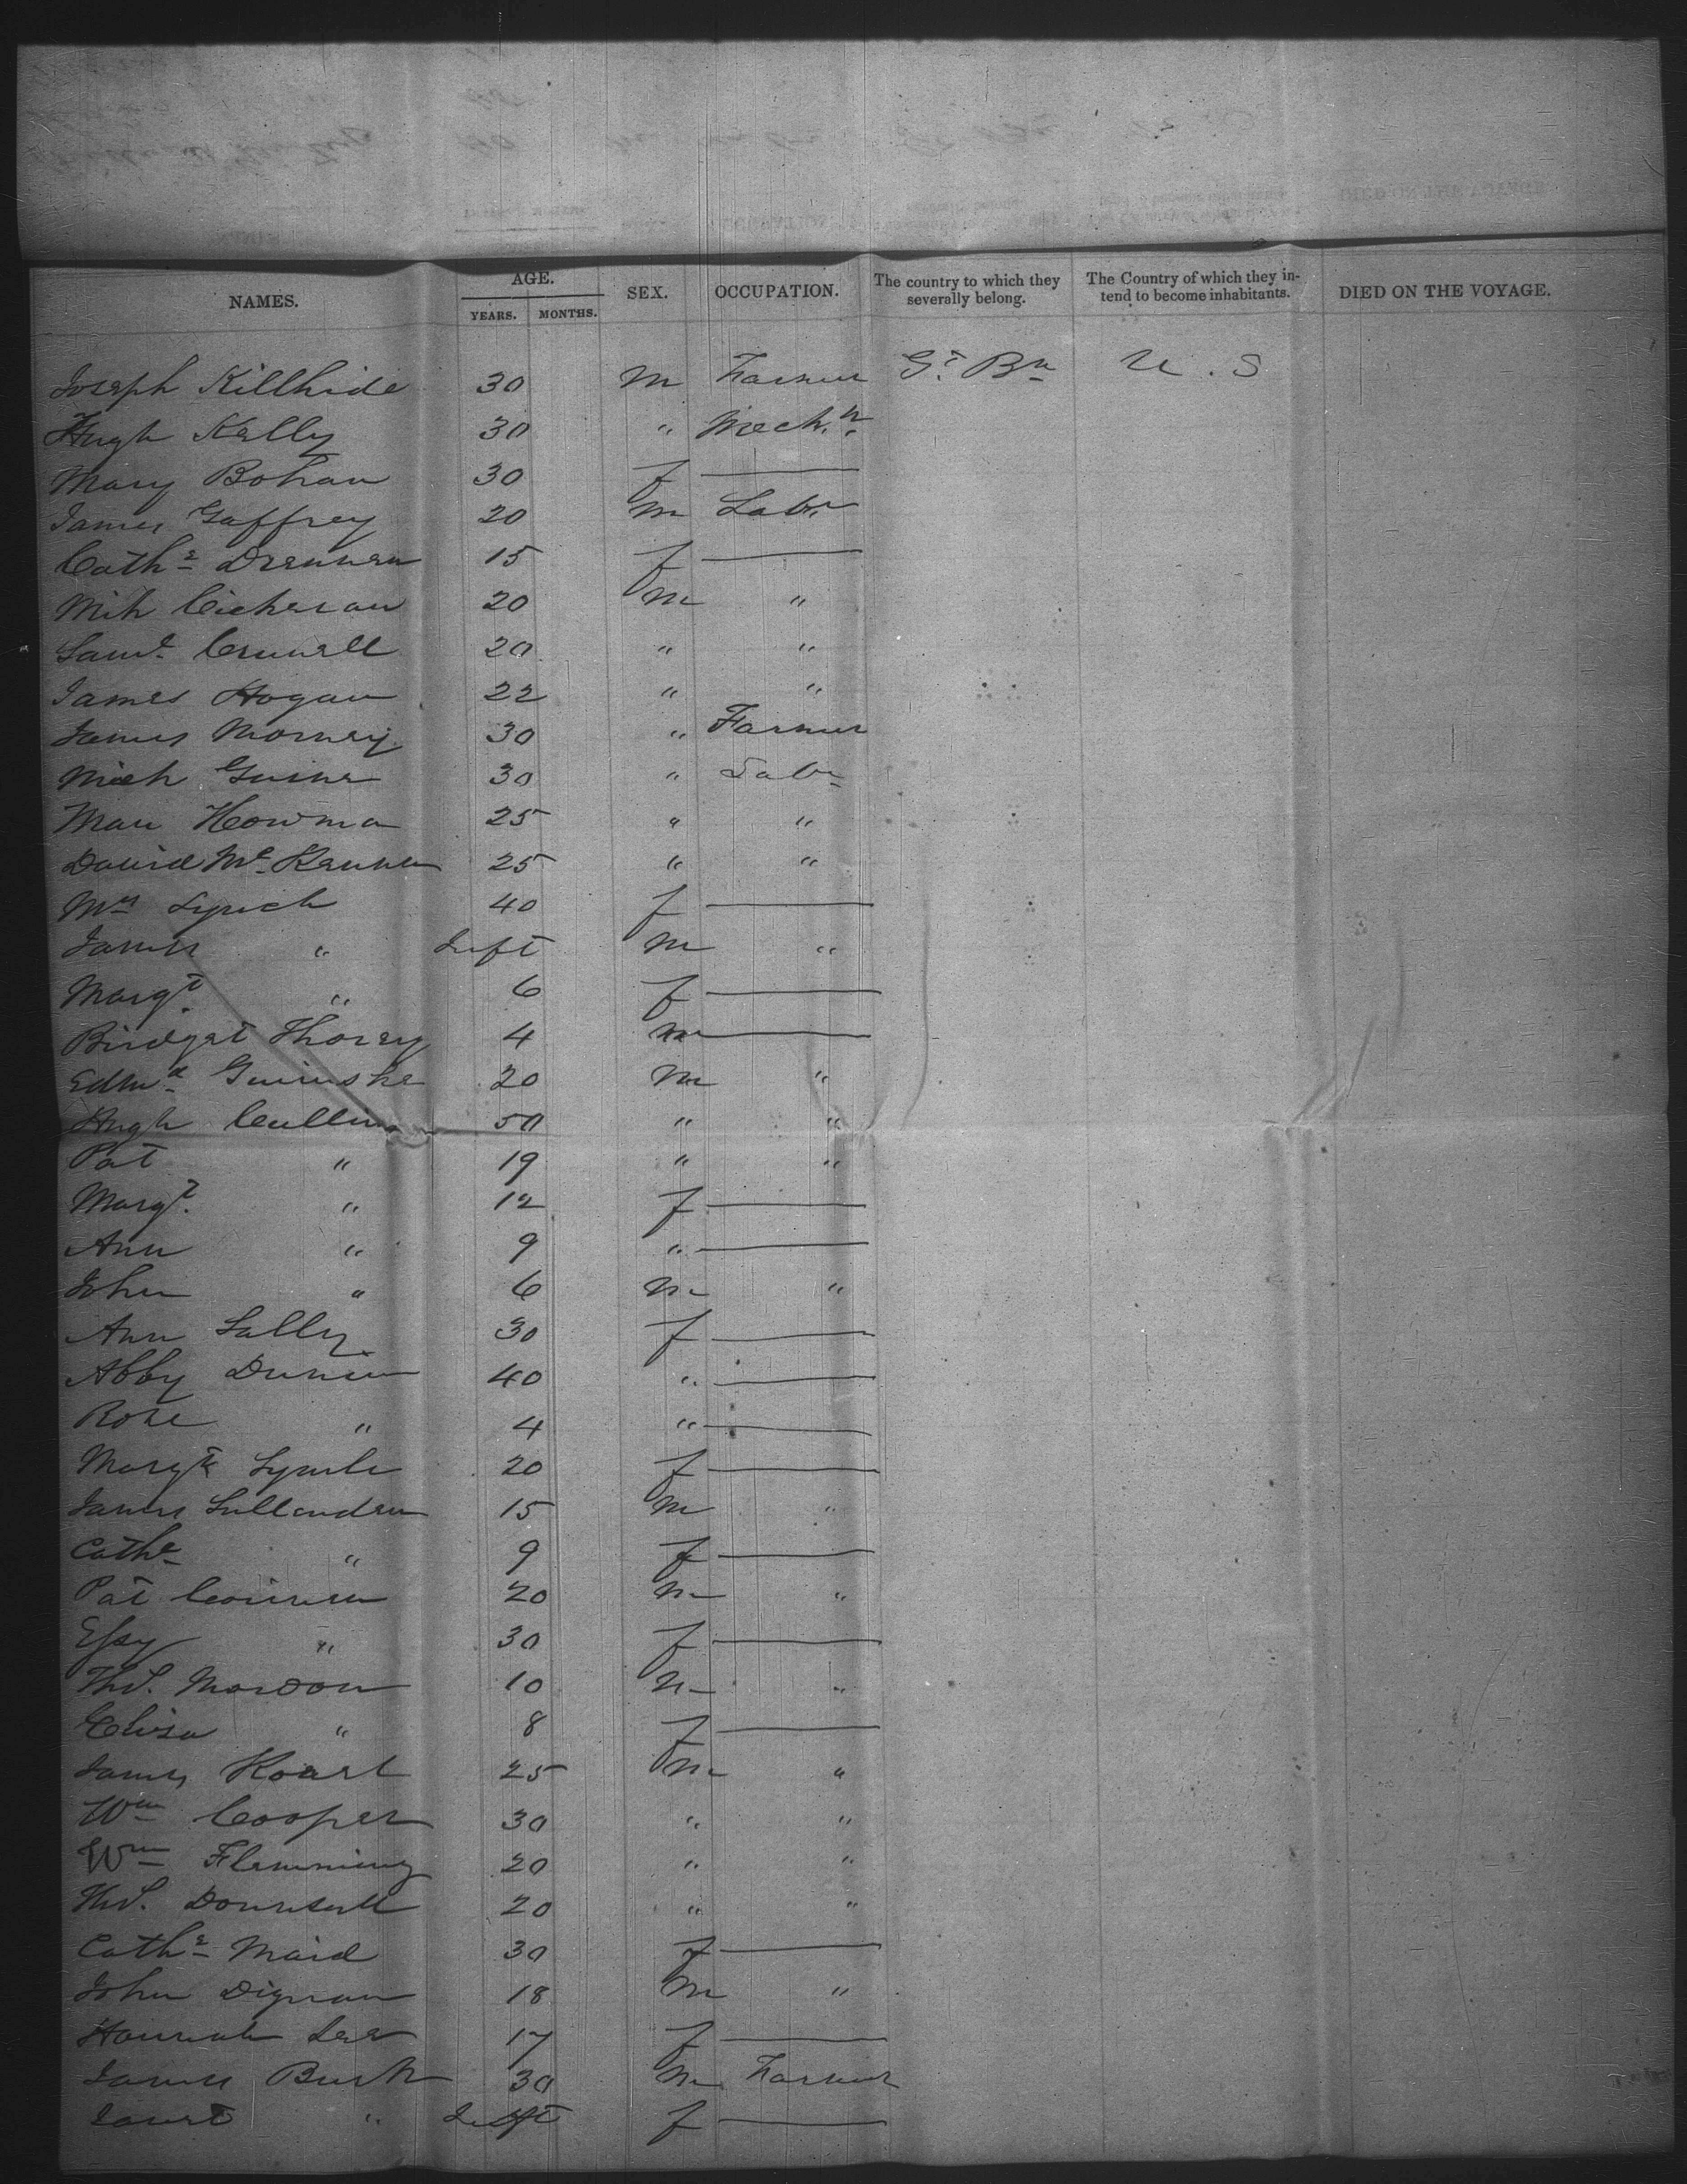 NAMES. AGE. YEARS. MONTHS. SEX. OCCUPATION. The country to which they severally belong. The Country of which they intend to become inhabitants. DIED ON THE VOYAGE.
Joseph Killhide 30 m Farmer Gt. Bn U.S
Hugh Kelly 30 " Mech.n
Mary Bohan 30 f —
James Gaffrey 20 m Labr
Cathe Drennen 15 f —
Mih 20 m "
Saml 20 " "
James Hogan 22 " "
James Morney 30 " Farmer
Mich Guina 30 " Labr
Howma 25 " "
David Mc 25 " "
Mrs Lynch 40 f —
James " Inft m "
Margt. " 6 f —
Bridget 4 m —
Edmd 20 m "
Hugh Cullin 50 " "
Pat " 19 " "
Margt. " 12 f —
Ann " 9 " —
John " 6 m "
Ann Lally 30 f —
Abby 40 " —
Rose " 4 " —
Margt 20 f —
James 15 m "
Cathe " 9 f —
Pat 20 m "
" 30 f —
Ths. 10 m "
Eliza " 8 f —
James 25 m "
Wm Cooper 30 " "
Wm Flemming 20 " "
Ths. 20 " "
Cathe Maid 30 f —
John Dignan 18 m "
Hannah Lee 17 f —
James Burk 30 m Farmer
" Inft f —